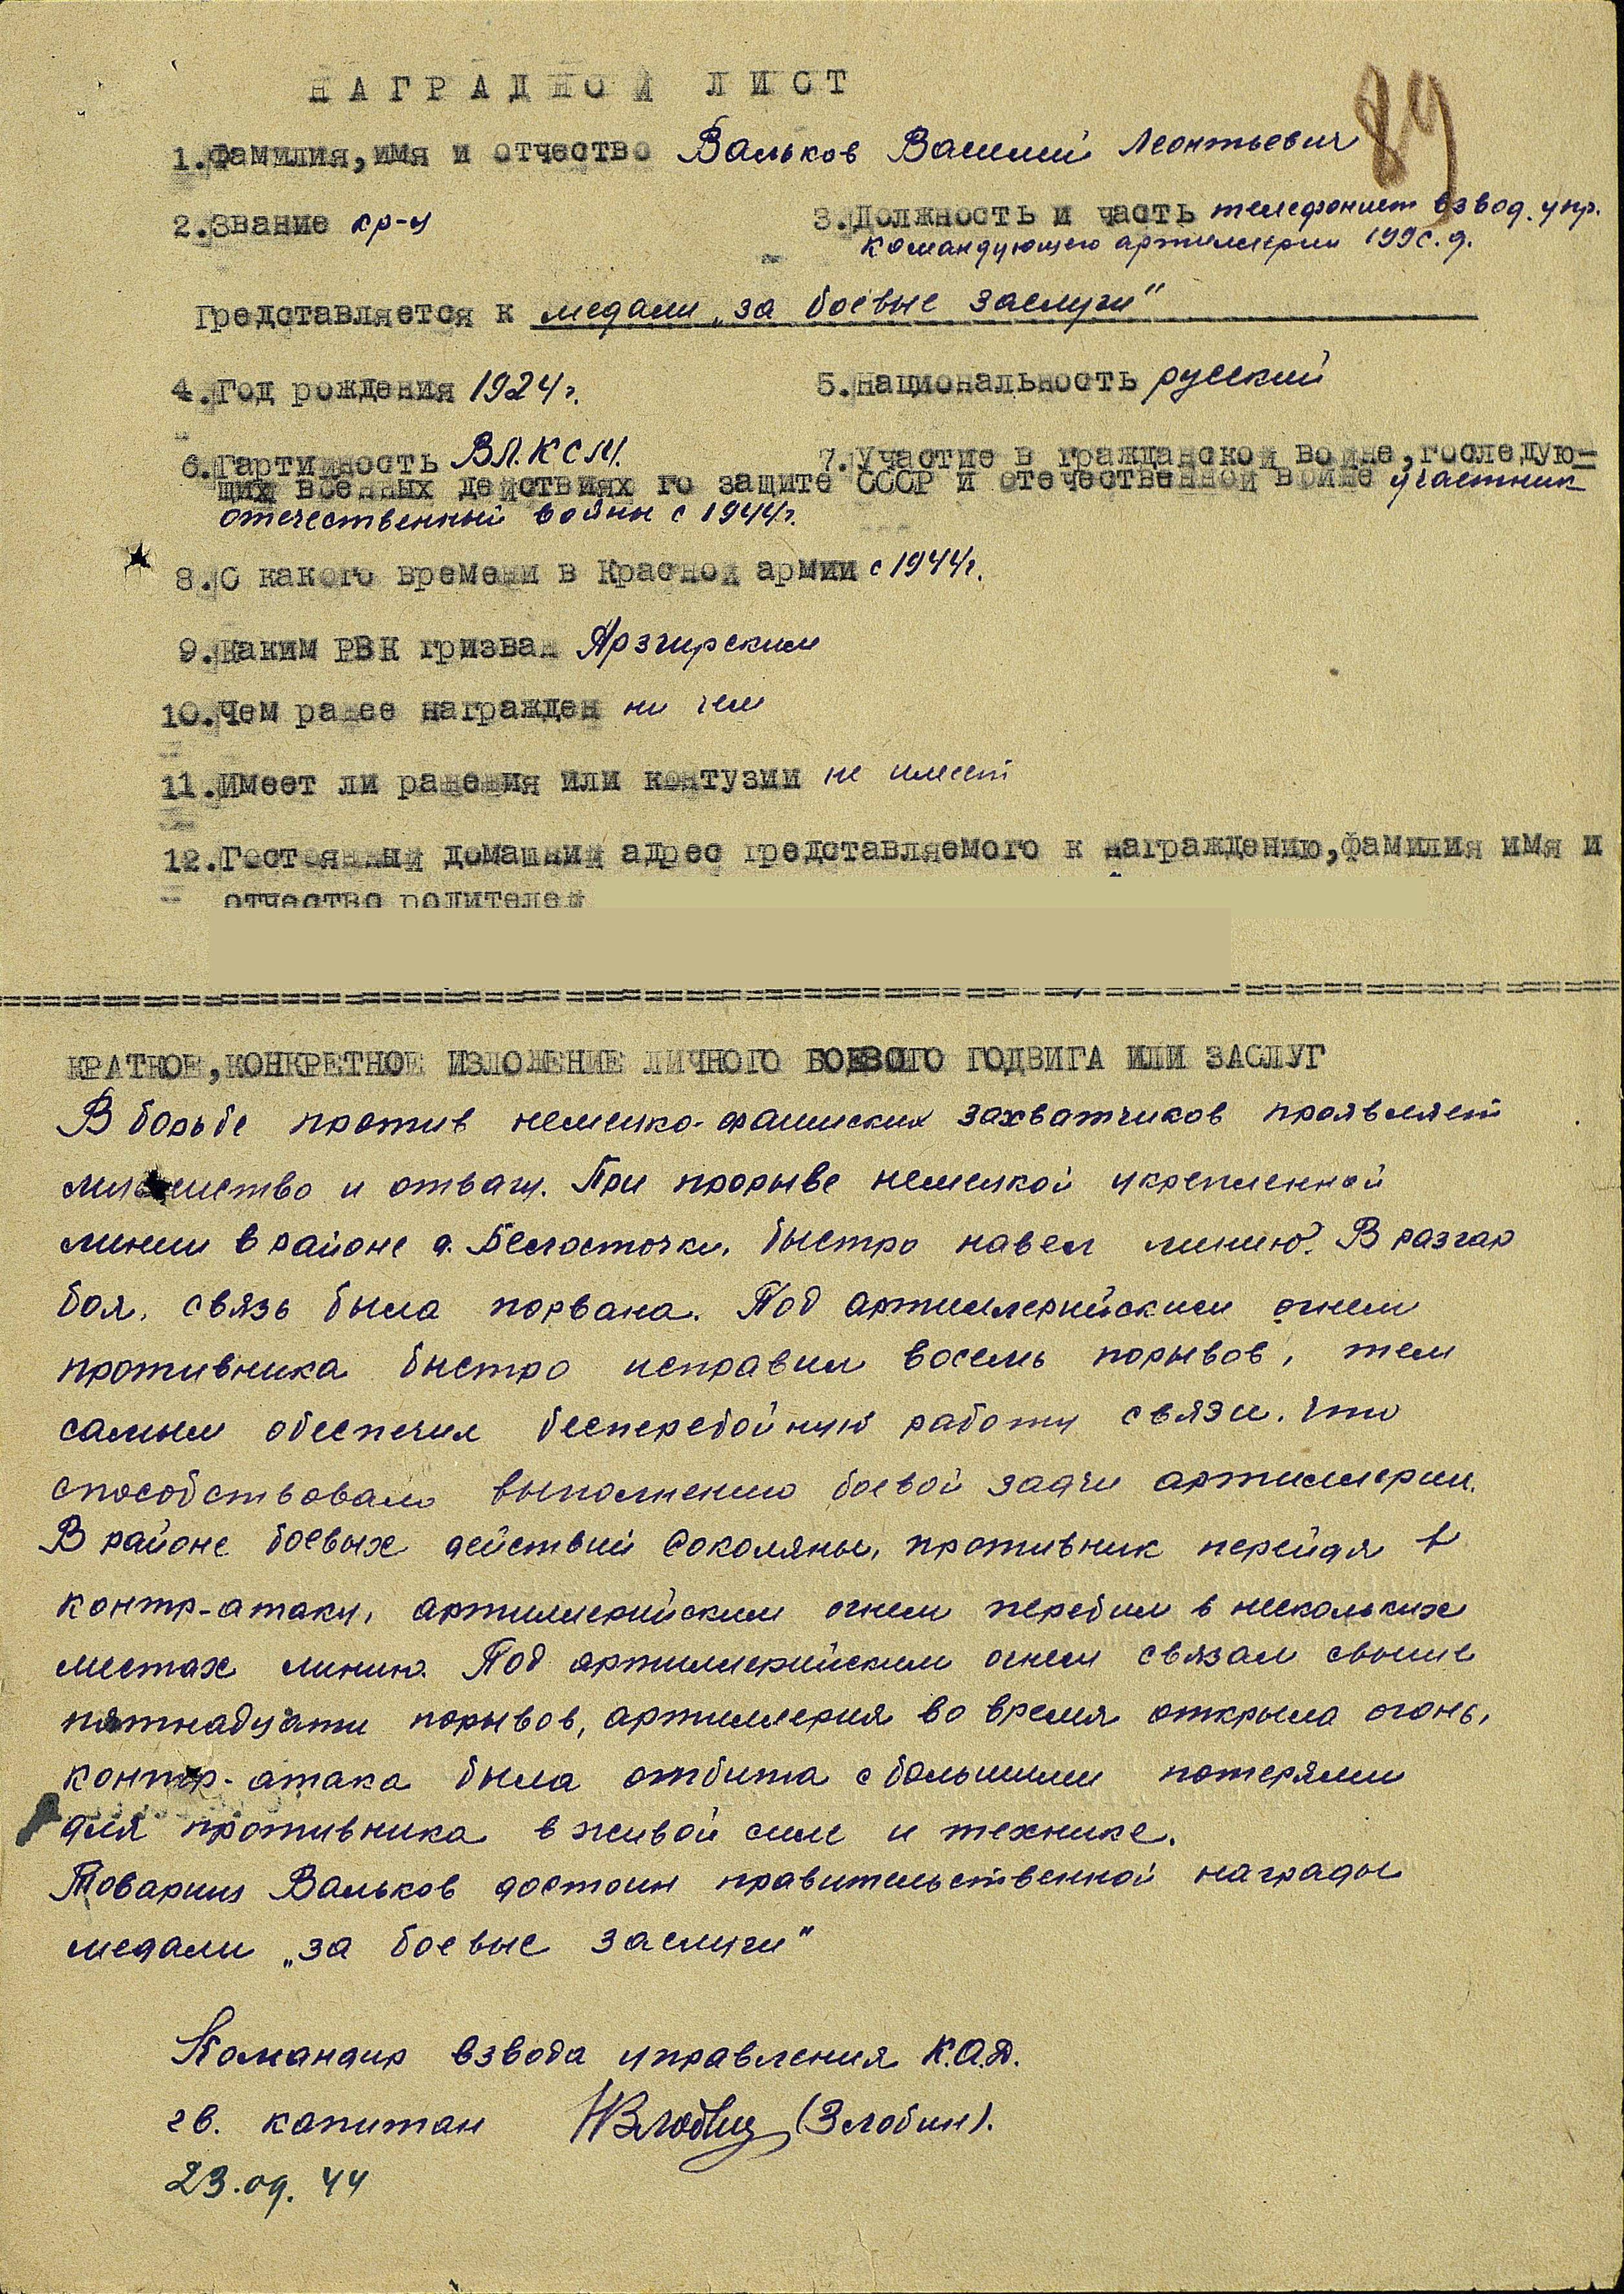 НАГРАДНОЙ ЛИСТ
89
1. Фамилия, имя и отчество Вальков Василий Леонтьевич
2. Звание кр-ц
3. Должность и часть телефонист взвод. упр.
командующего артилерии 199 с.д.
Представляется к медали „за боевые заслуги"
4. Год рождения 1924 г.
5. Национальность русский
6. Партийность ВЛКСМ.
7. Участие в гражданской войне, последую-
щих военных действиях по защите СССР и отечественной войне участник
отечественный войны с 1944 г.
8. С какого времени в Красной армии с 1944 г.
9. Каким РВК призван Арзгирским
10. Чем ранее награжден ни чем
11. Имеет ли ранения или контузии не имеет
12. Постоянный домашний адрес представляемого к награждению, фамилия имя и
отчество родителей
КРАТКОЕ, КОНКРЕТНОЕ ИЗЛОЖЕНИЕ ЛИЧНОГО БОЕВОГО ПОДВИГА ИЛИ ЗАСЛУГ
В борьбе против немецко-фашиских захватчиков проявляет
мужество и отвагу. При прорыве немецкой укрепленной
линии в районе д. Белосточки, быстро навел линию. В разгар
боя, связь была порвана. Под артиллерийским огнем
противника быстро исправил восемь порывов, тем
самым обеспечил бесперебойную работу связи. что
способствовало выполнению боевой задачи артиллерии.
В районе боевых действий Соколяны, противник перейдя в
контр-атаку, артиллерийским огнем перебил в нескольких
местах линию. Под артиллерийским огнем связал свыше
пятнадцати порывов, артиллерия во время открыла огонь,
контр-атака была отбита с большими потерями
для противника в живой силе и технике.
Товарищ Вальков достоин правительственной награды
медали „за боевые заслуги"
Командир взвода управления К.А.Д.
гв. капитан (Злобин).
23.09.44